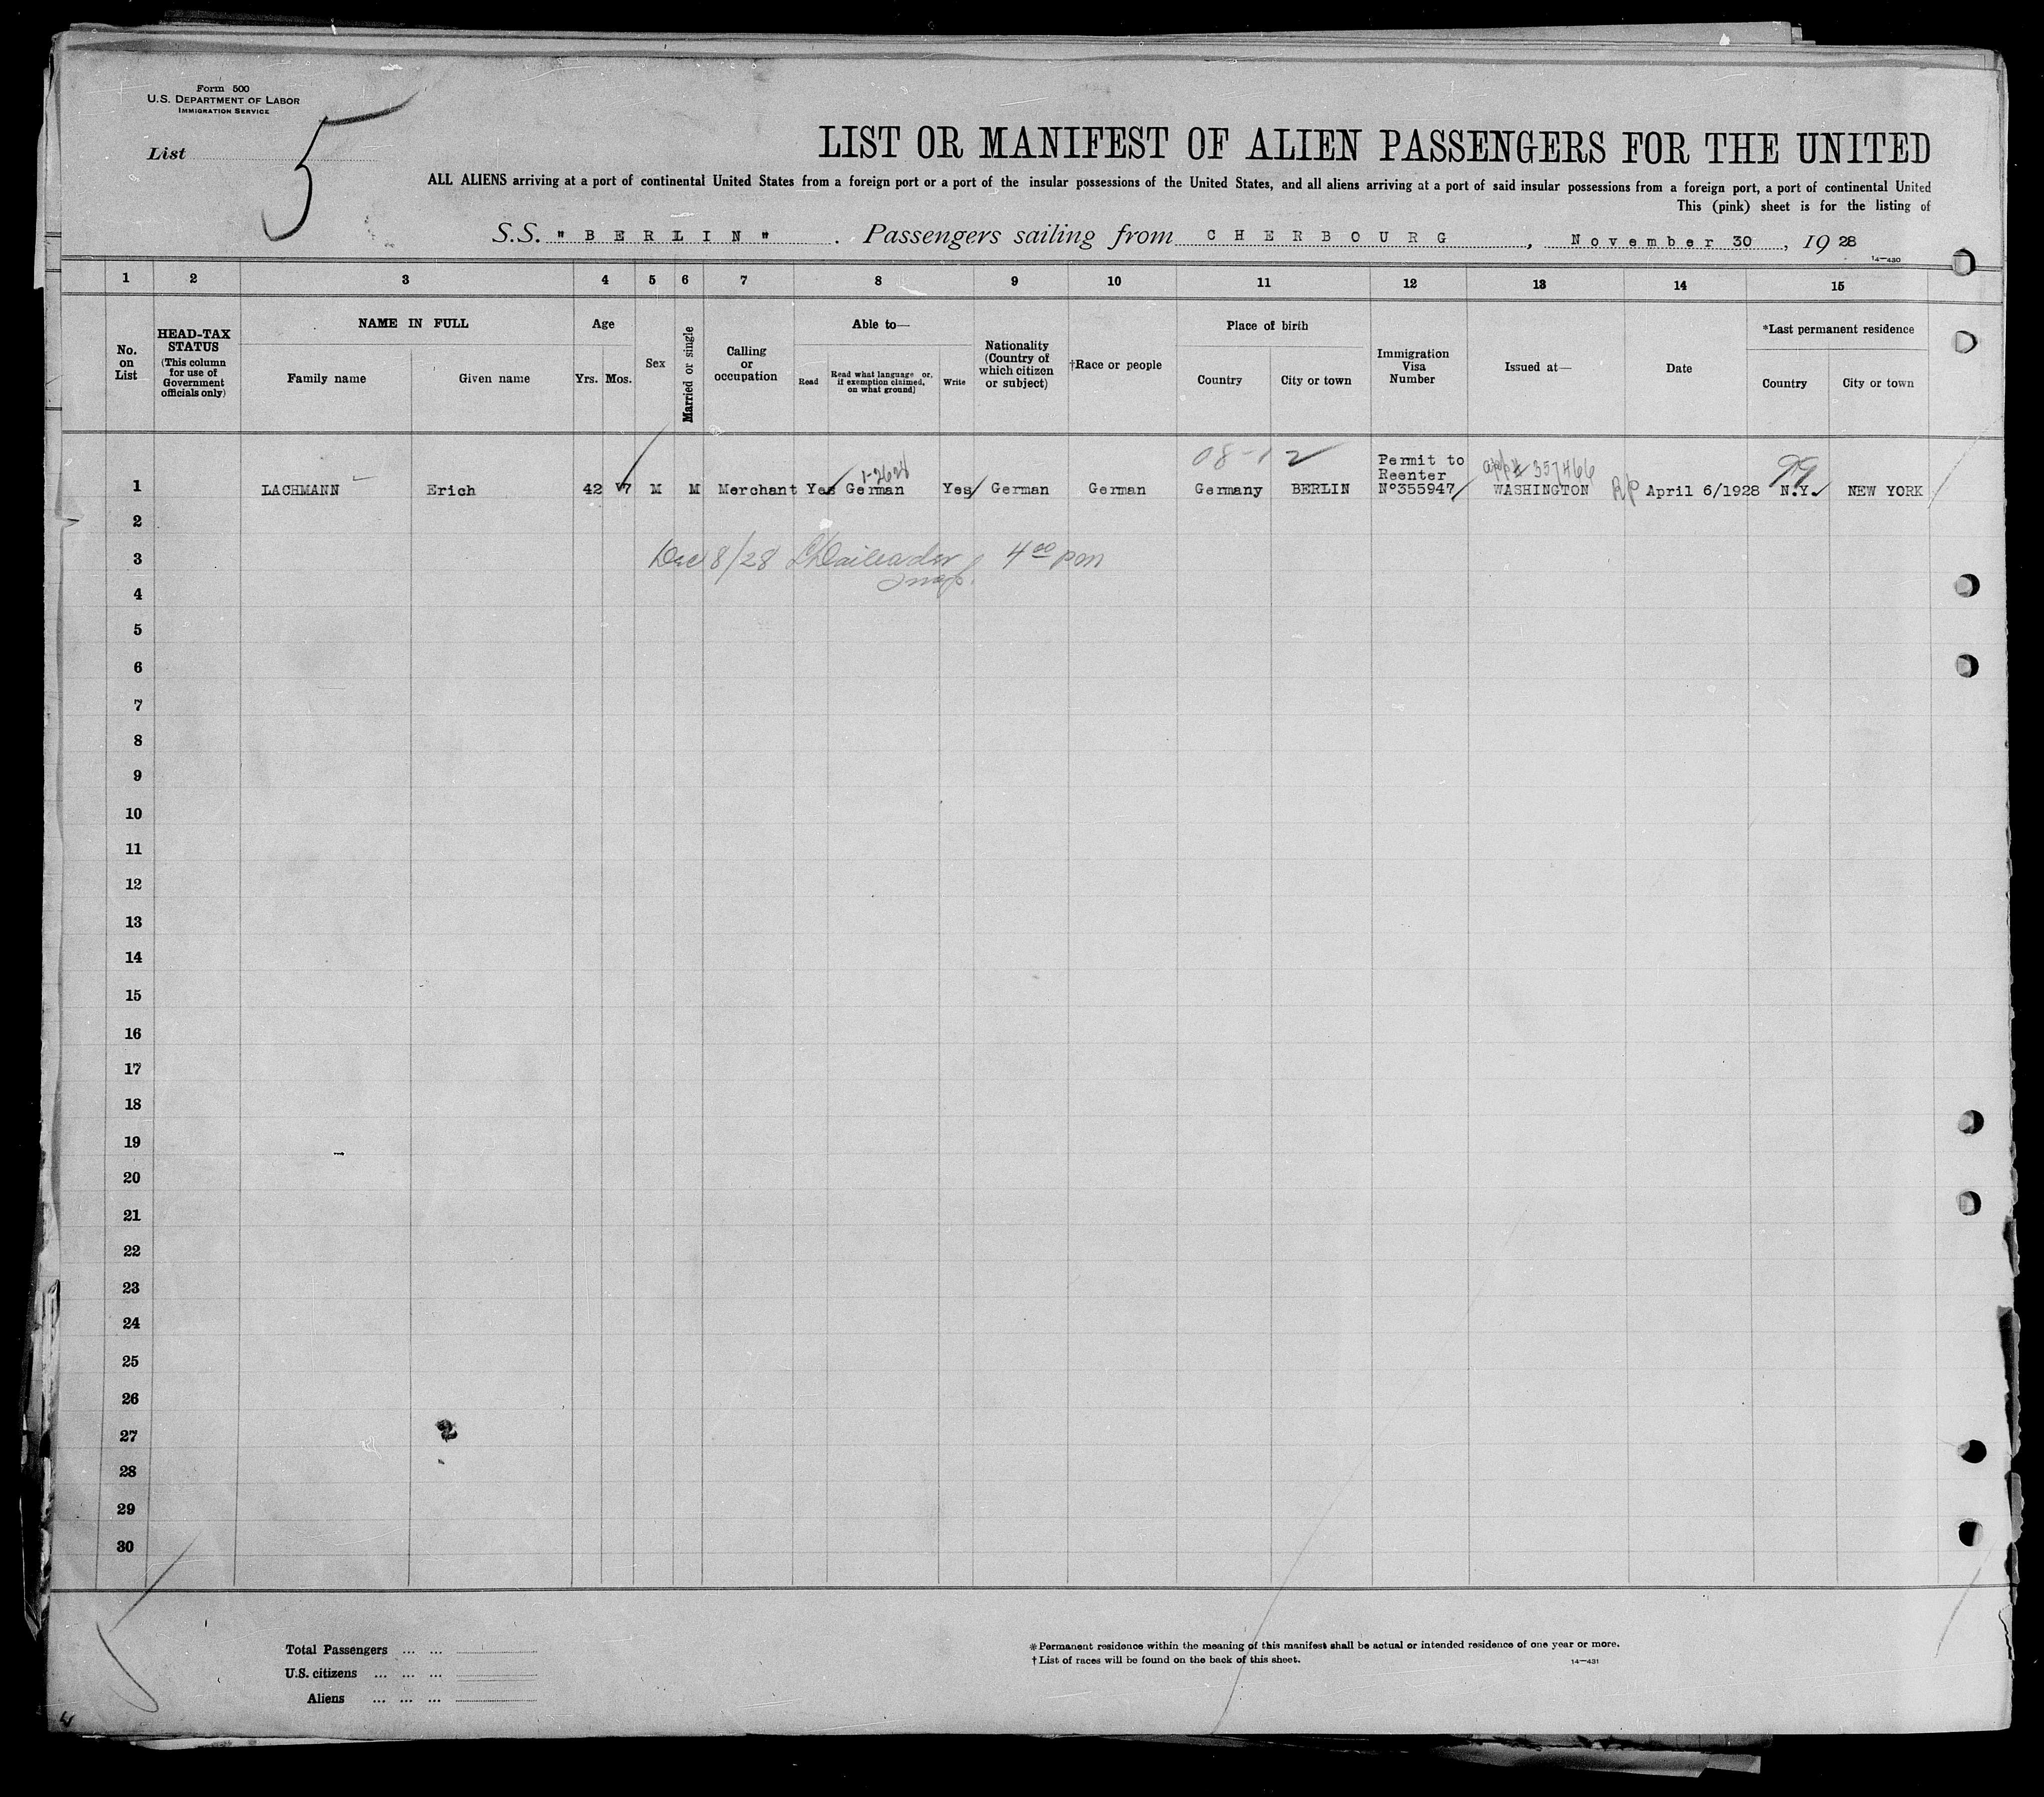 Form 500
U.S. DEPARTMENT OF LABOR
IMMIGRATION SERVICE
List 5
LIST OR MANIFEST OF ALIEN PASSENGERS FOR THE UNITED
ALL ALIENS arriving at a port of continental United States from a foreign port or a port of the insular possessions of the United States, and all aliens arriving at a port of said insular possessions from a foreign port, a port of continental United
This (pink) sheet is for the listing of
S.S. "BERLIN". Passengers sailing from CHERBOURG, November 30, 1928
14—430
1 2 3 4 5 6 7 8 9 10 11 12 13 14 15
No. on List
HEAD-TAX STATUS
(This column for use of Government officials only)
NAME IN FULL
Family name
Given name
Age
Yrs. Mos.
Sex
Married or single
Calling or occupation
Able to—
Read
Read what language or, if exemption claimed, on what ground)
Write
Nationality (Country of which citizen or subject)
†Race or people
Place of birth
Country
City or town
Immigration Visa Number
Issued at—
Date
*Last permanent residence
Country
City or town
08-12
Permit to
Reenter
1-2628 357466 99
1 LACHMANN Erich 42 7 M M Merchant Yes German Yes German German Germany BERLIN Nº355947 WASHINGTON R/P April 6/1928 N.Y. NEW YORK
2
3 Dec 8/28 4⁰⁰ pm
Insp.
4
5
6
7
8
9
10
11
12
13
14
15
16
17
18
19
20
21
22
23
24
25
26
27
2
28
29
30
Total Passengers ... ...
U.S. citizens ... ... ...
Aliens ... ... ...
*Permanent residence within the meaning of this manifest shall be actual or intended residence of one year or more.
†List of races will be found on the back of this sheet.
14—431